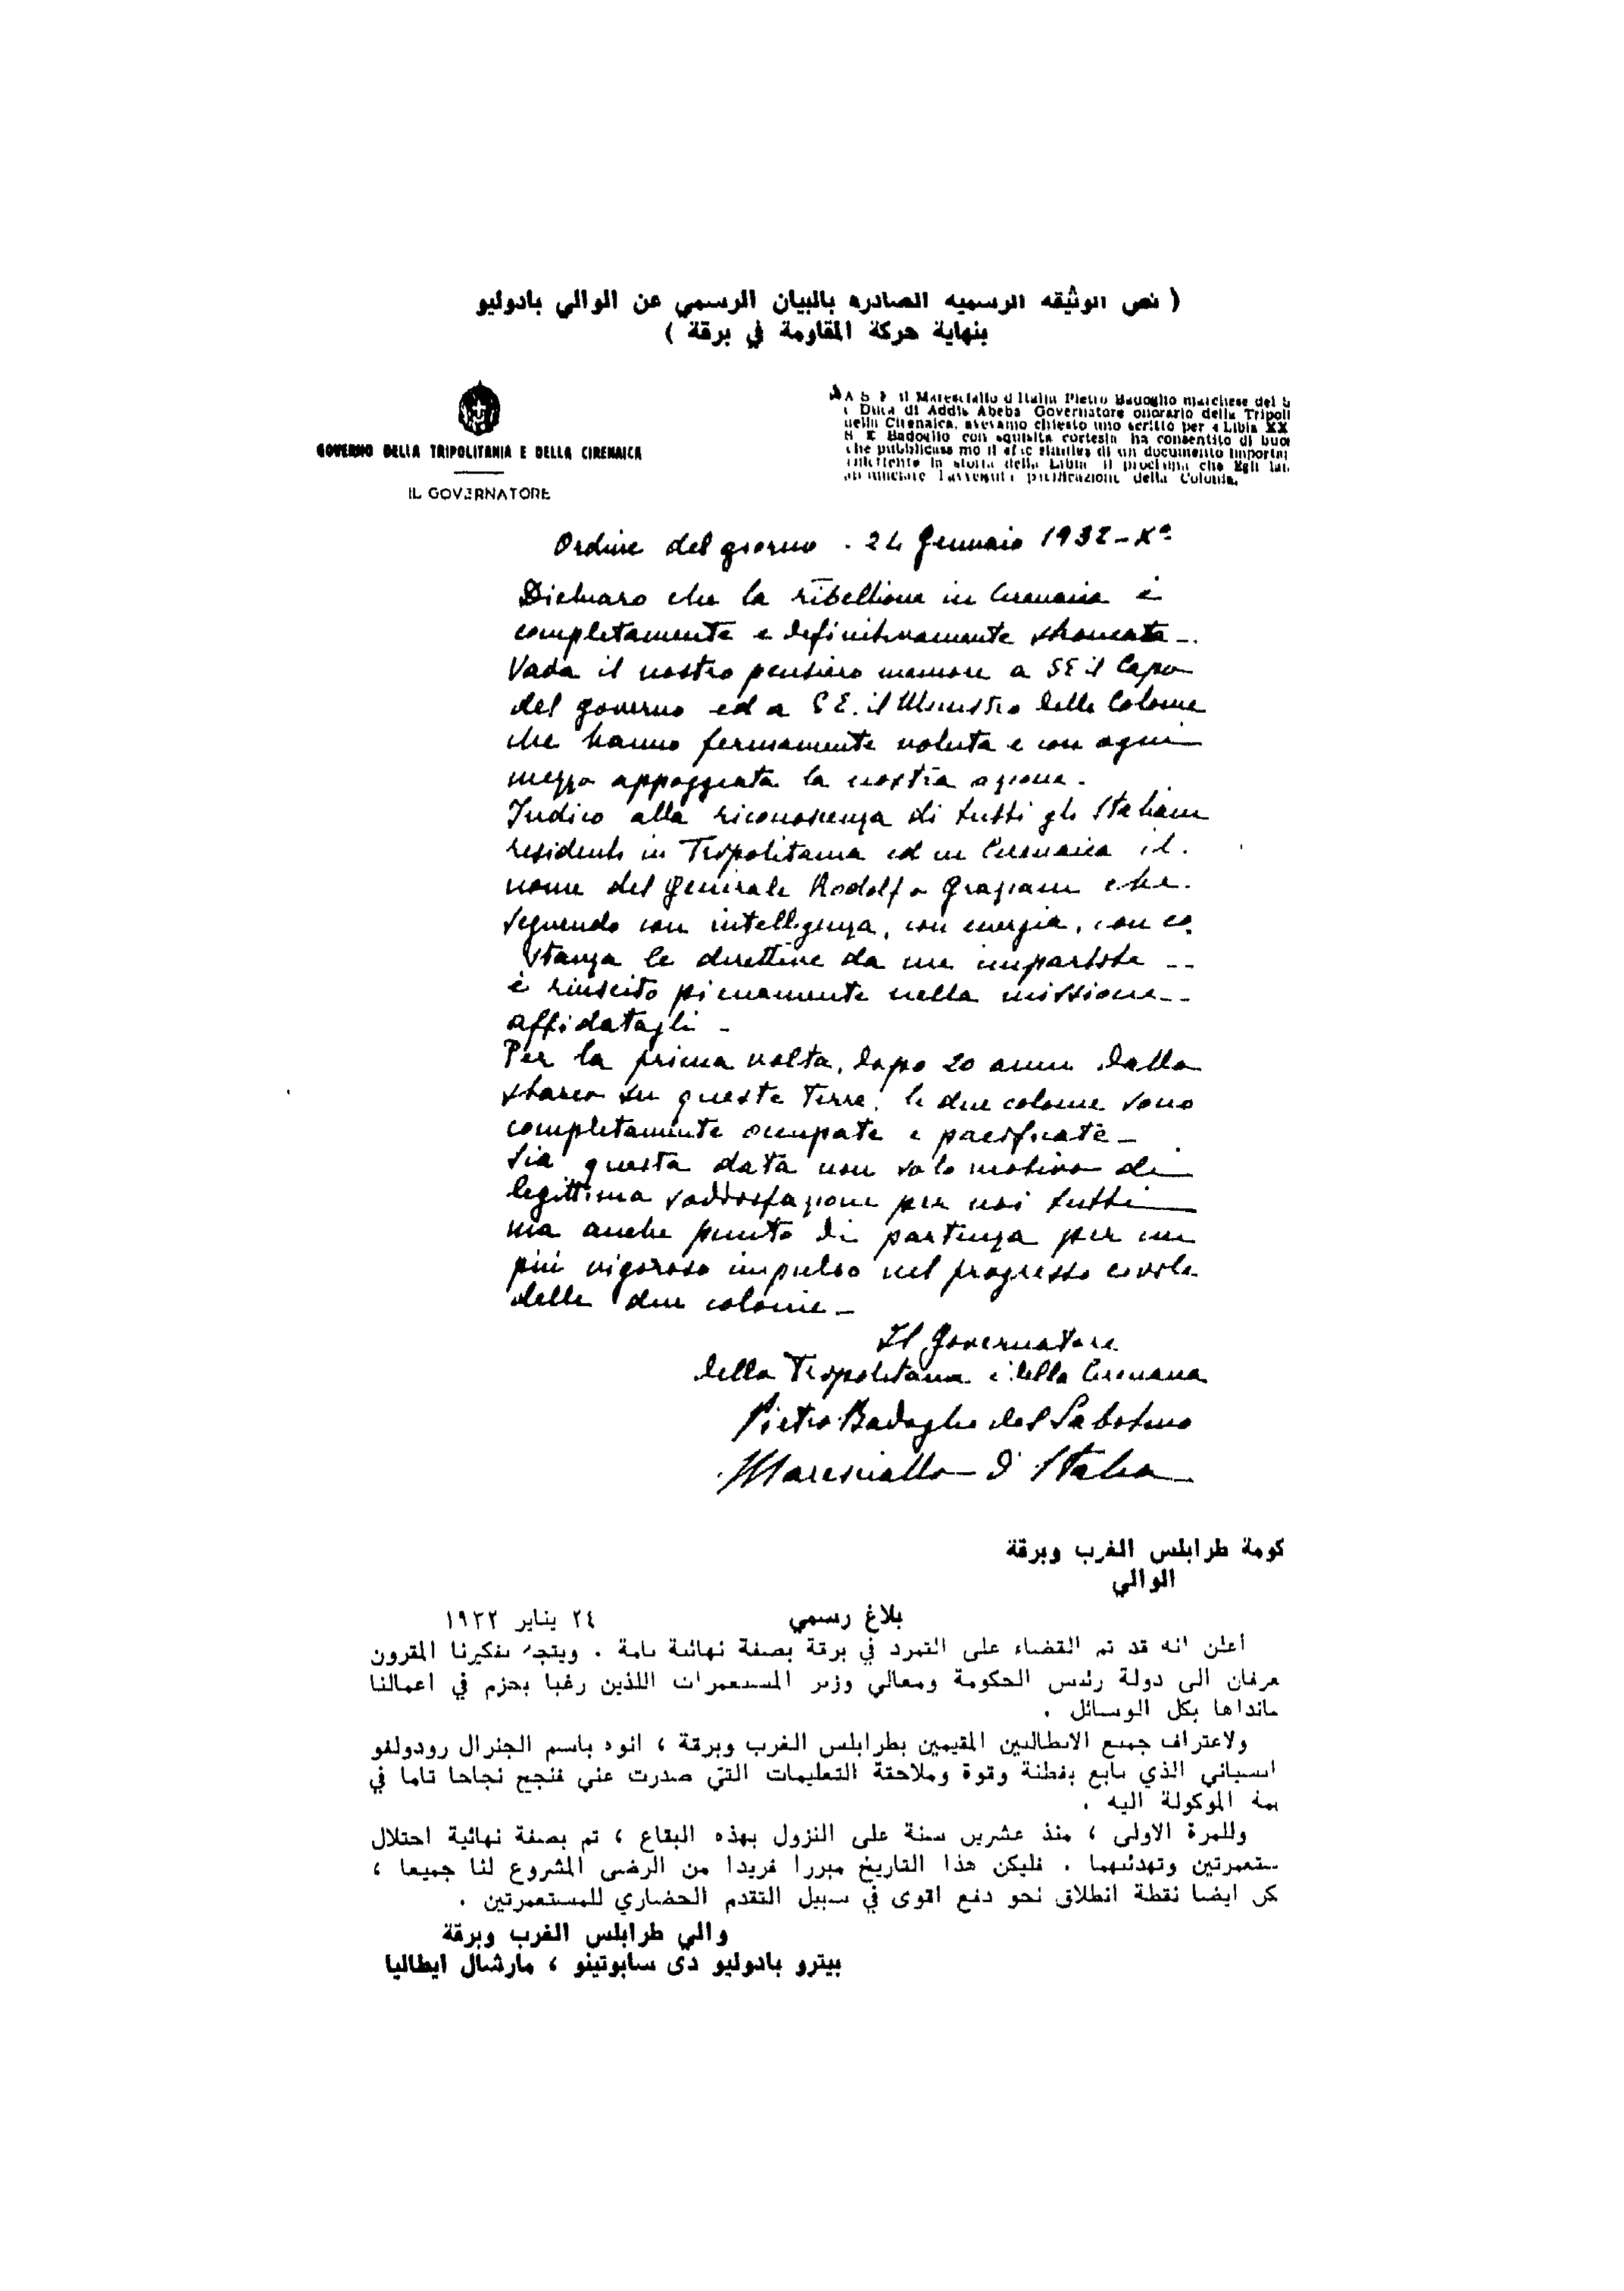 ( نص الوثيقه الرسميه الصادره بالبيان الرسمي عن الوالي بادوليو
بنهاية حركة المقاومة في برقة )
GOVERNO DELLA TRIPOLITANIA E DELLA CIRENAICA
IL GOVERNATORE
A S E il Maresciallo d Italia Pietro Badoglio marchese del S
Duca di Addis Abeba Governatore onorario della Tripoli
della Cirenaica, avevamo chiesto uno scritto per « Libia XX
S E Badoglio con squisita cortesia ha consentito di buon
che pubblicassimo il di un documento importan
la storia della Libia il proclama che Egli
annunciare l'avvenuta pacificazione della Colonia.
Ordine del giorno . 24 Gennaio 1932 - Xº
Dichiaro che la ribellione in Cirenaica è
completamente e definitivamente stroncata -.
Vada il nostro pensiero memore a SE il Capo
del governo ed a S E. il Ministro delle Colonie
che hanno fermamente voluta e con ogni
mezzo appoggiata la nostra azione.
Indico alla riconoscenza di tutti gli Italiani
residenti in Tripolitania ed in Cirenaica il
nome del generale Rodolfo Graziani che
seguendo con intelligenza, con energia, con co
stanza le direttive da me impartite --
è riuscito pienamente nella missione --
affidatagli -
Per la prima volta, dopo 20 anni dallo
sbarco su queste Terre, le due colonie sono
completamente occupate e pacificate -
Sia questa data non solo motivo di
legittima soddisfazione per noi tutti
ma anche punto di partenza per un
più vigoroso impulso nel progresso civile
delle due colonie -
Il Governatore
della Tripolitania e della Cirenaica
Pietro Badoglio del Sabotino
Maresciallo d'Italia
كومة طرابلس الغرب وبرقة
الوالي
بلاغ رسمي ٢٤ يناير ١٩٣٢
أعلن انه قد تم القضاء على التمرد في برقة بصفة نهائية تامة . ويتجه تفكيرنا المقرون
عرفان الى دولة رئيس الحكومة ومعالي وزير المستعمرات اللذين رغبا بحزم في اعمالنا
سانداها بكل الوسائل .
ولاعتراف جميع الايطاليين المقيمين بطرابلس الغرب وبرقة ، انوه باسم الجنرال رودولفو
اتسياني الذي تابع بفطنة وقوة وملاحقة التعليمات التي صدرت عني فنجح نجاحا تاما في
مة الموكولة اليه .
وللمرة الاولى ، منذ عشرين سنة على النزول بهذه البقاع ، تم بصفة نهائية احتلال
ستعمرتين وتهدئتهما . فليكن هذا التاريخ مبررا فريدا من الرضى المشروع لنا جميعا ،
كن ايضا نقطة انطلاق نحو دفع اقوى في سبيل التقدم الحضاري للمستعمرتين .
والي طرابلس الغرب وبرقة
بيترو بادوليو دى سابوتينو ، مارشال ايطاليا